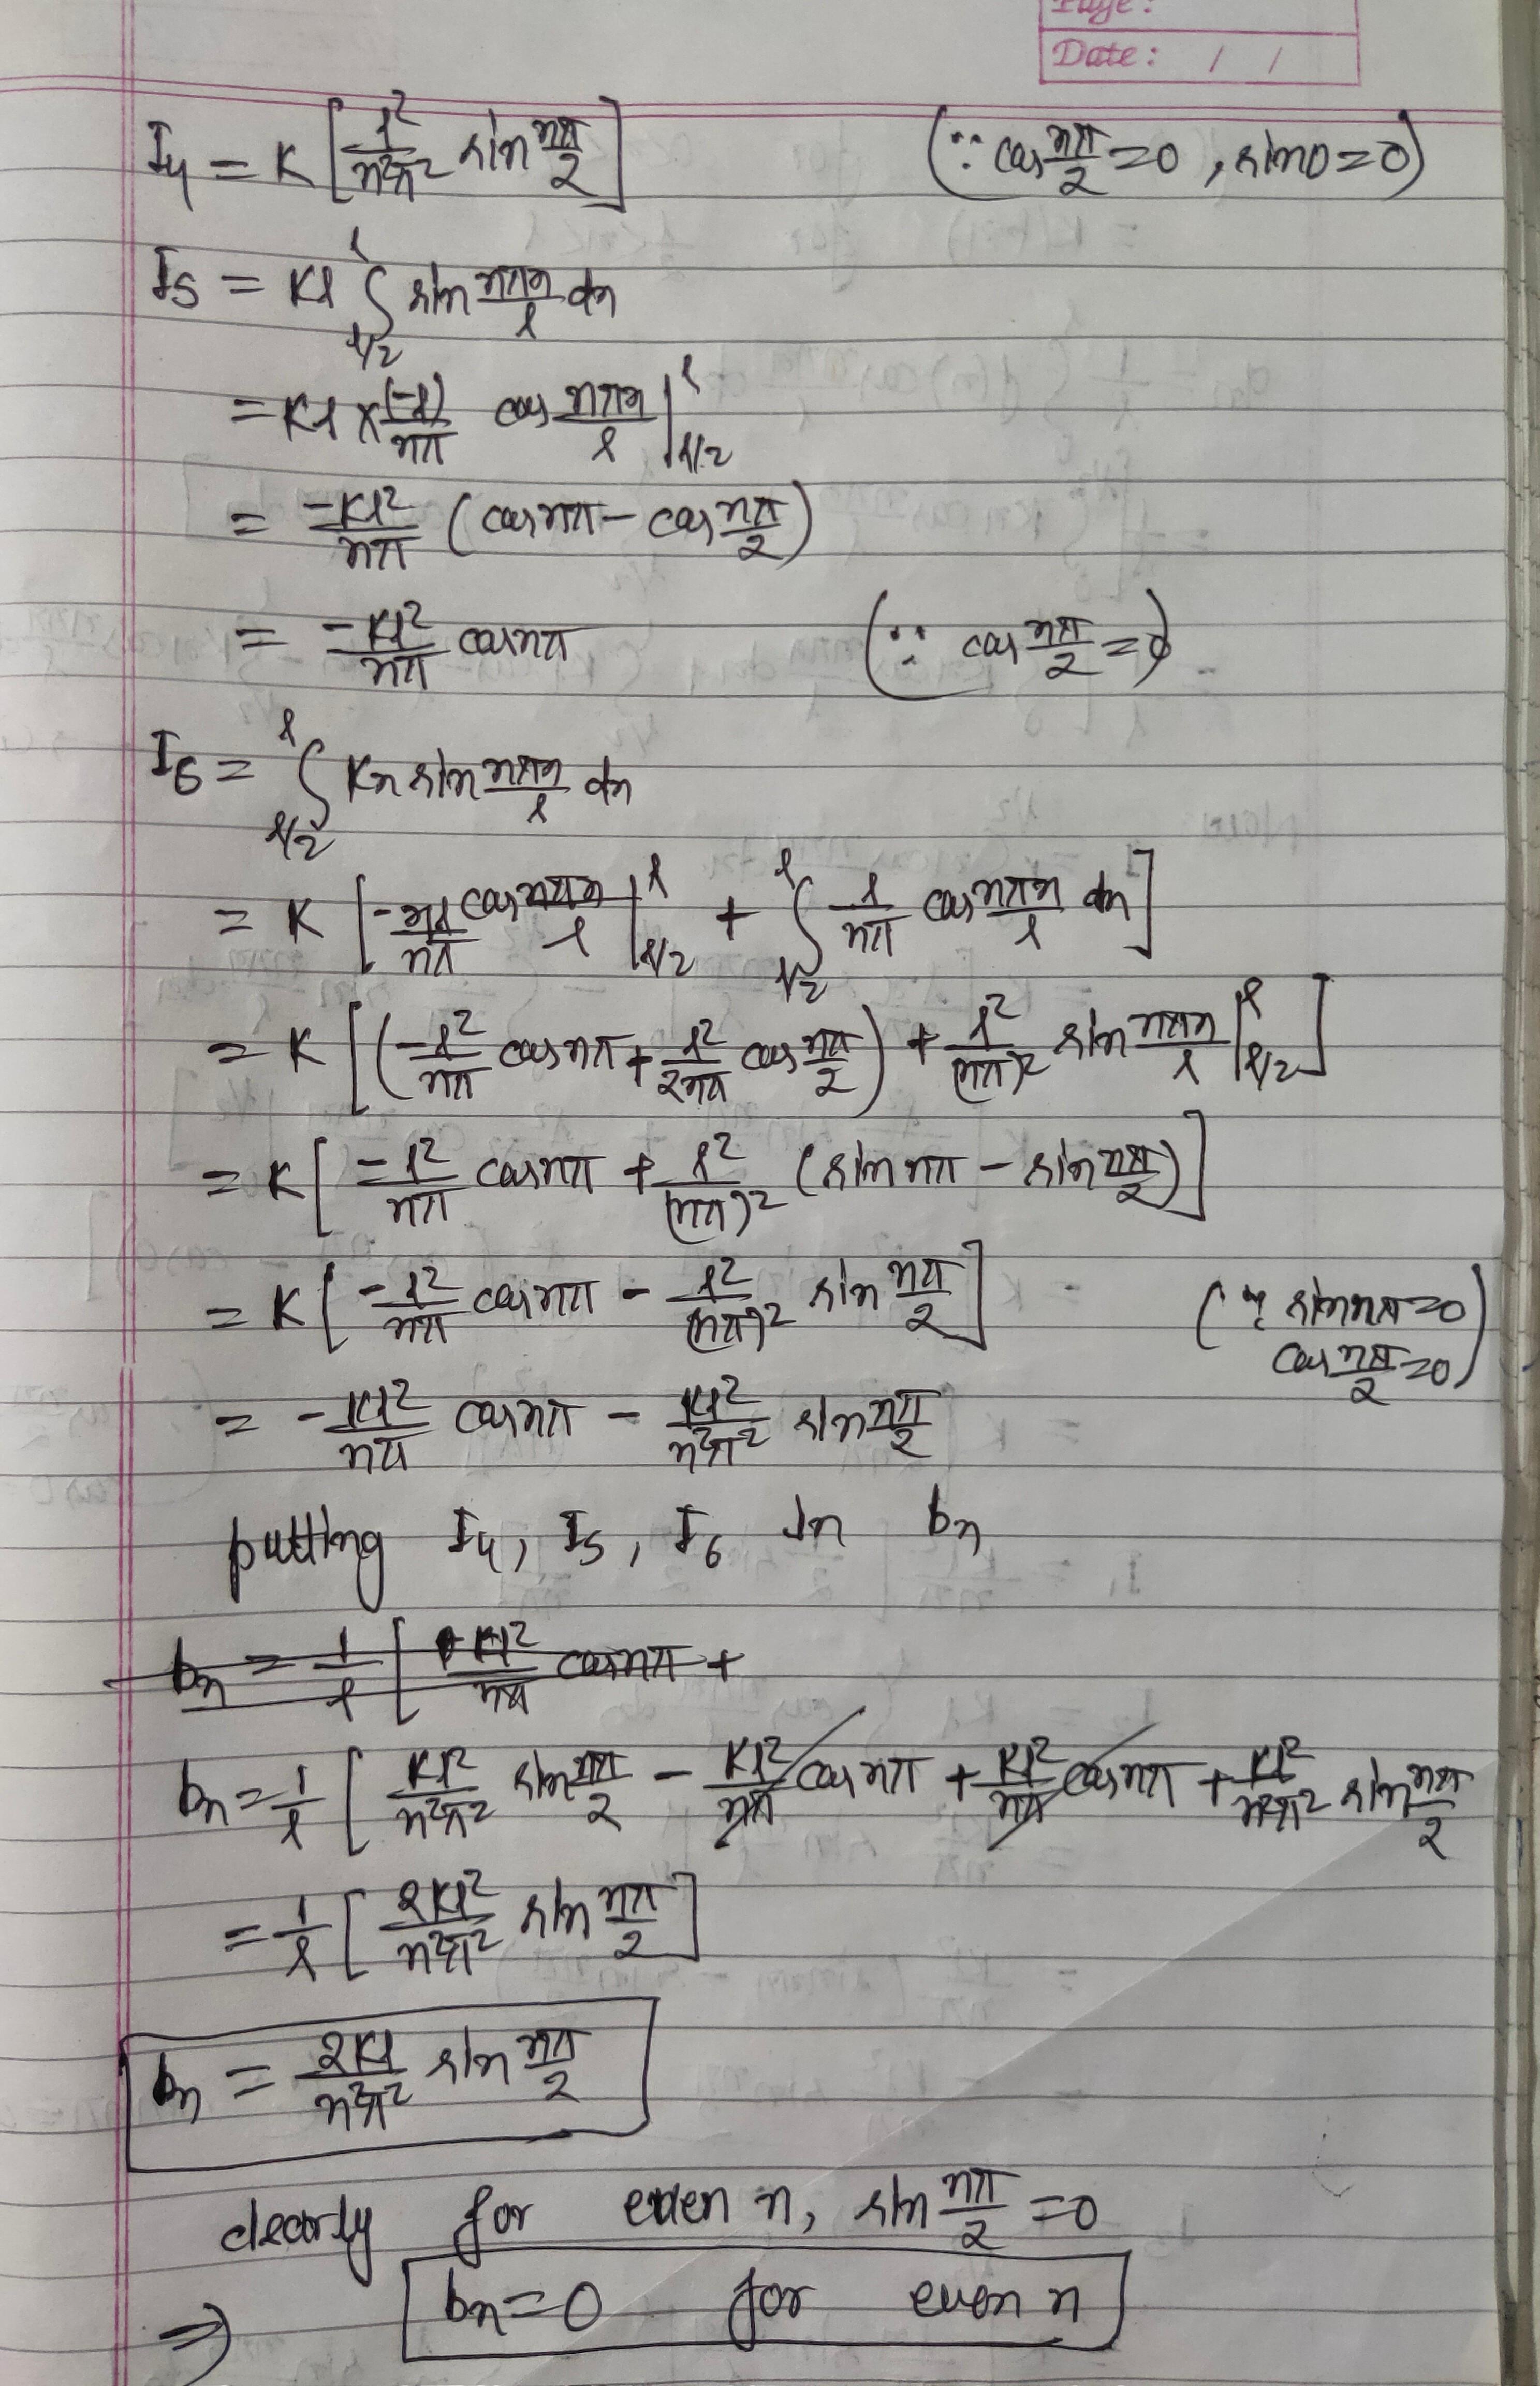 Page:
Date: / /
I₄ = K [ l²/n²π² sin nπ/2 ] (∵ cos nπ/2 = 0, sin0 = 0)
I₅ = Kl ∫_{l/2}^{l} sin nπx/l dx
= Kl × (-l)/nπ cos nπx/l |_{l/2}^{l}
= -Kl²/nπ (cos nπ - cos nπ/2)
= -Kl²/nπ cos nπ (∵ cos nπ/2 = 0)
I₆ = ∫_{l/2}^{l} Kx sin nπx/l dx
= K [ -xl/nπ cos nπx/l |_{l/2}^{l} + ∫_{l/2}^{l} l/nπ cos nπx/l dx ]
= K [ ( -l²/nπ cos nπ + l²/2nπ cos nπ/2 ) + l²/(nπ)² sin nπx/l |_{l/2}^{l} ]
= K [ -l²/nπ cos nπ + l²/(nπ)² (sin nπ - sin nπ/2) ]
= K [ -l²/nπ cos nπ - l²/(nπ)² sin nπ/2 ] (∵ sin nπ = 0
cos nπ/2 = 0)
= -Kl²/nπ cos nπ - Kl²/n²π² sin nπ/2
putting I₄, I₅, I₆ In bn
bn = 1/l [ Kl²/nπ cos nπ +
bn = 1/l [ Kl²/n²π² sin nπ/2 - Kl²/nπ cos nπ + Kl²/nπ cos nπ + Kl²/n²π² sin nπ/2
= 1/l [ 2Kl²/n²π² sin nπ/2 ]
bn = 2Kl/n²π² sin nπ/2
clearly for even n, sin nπ/2 = 0
⇒ bn = 0 for even n